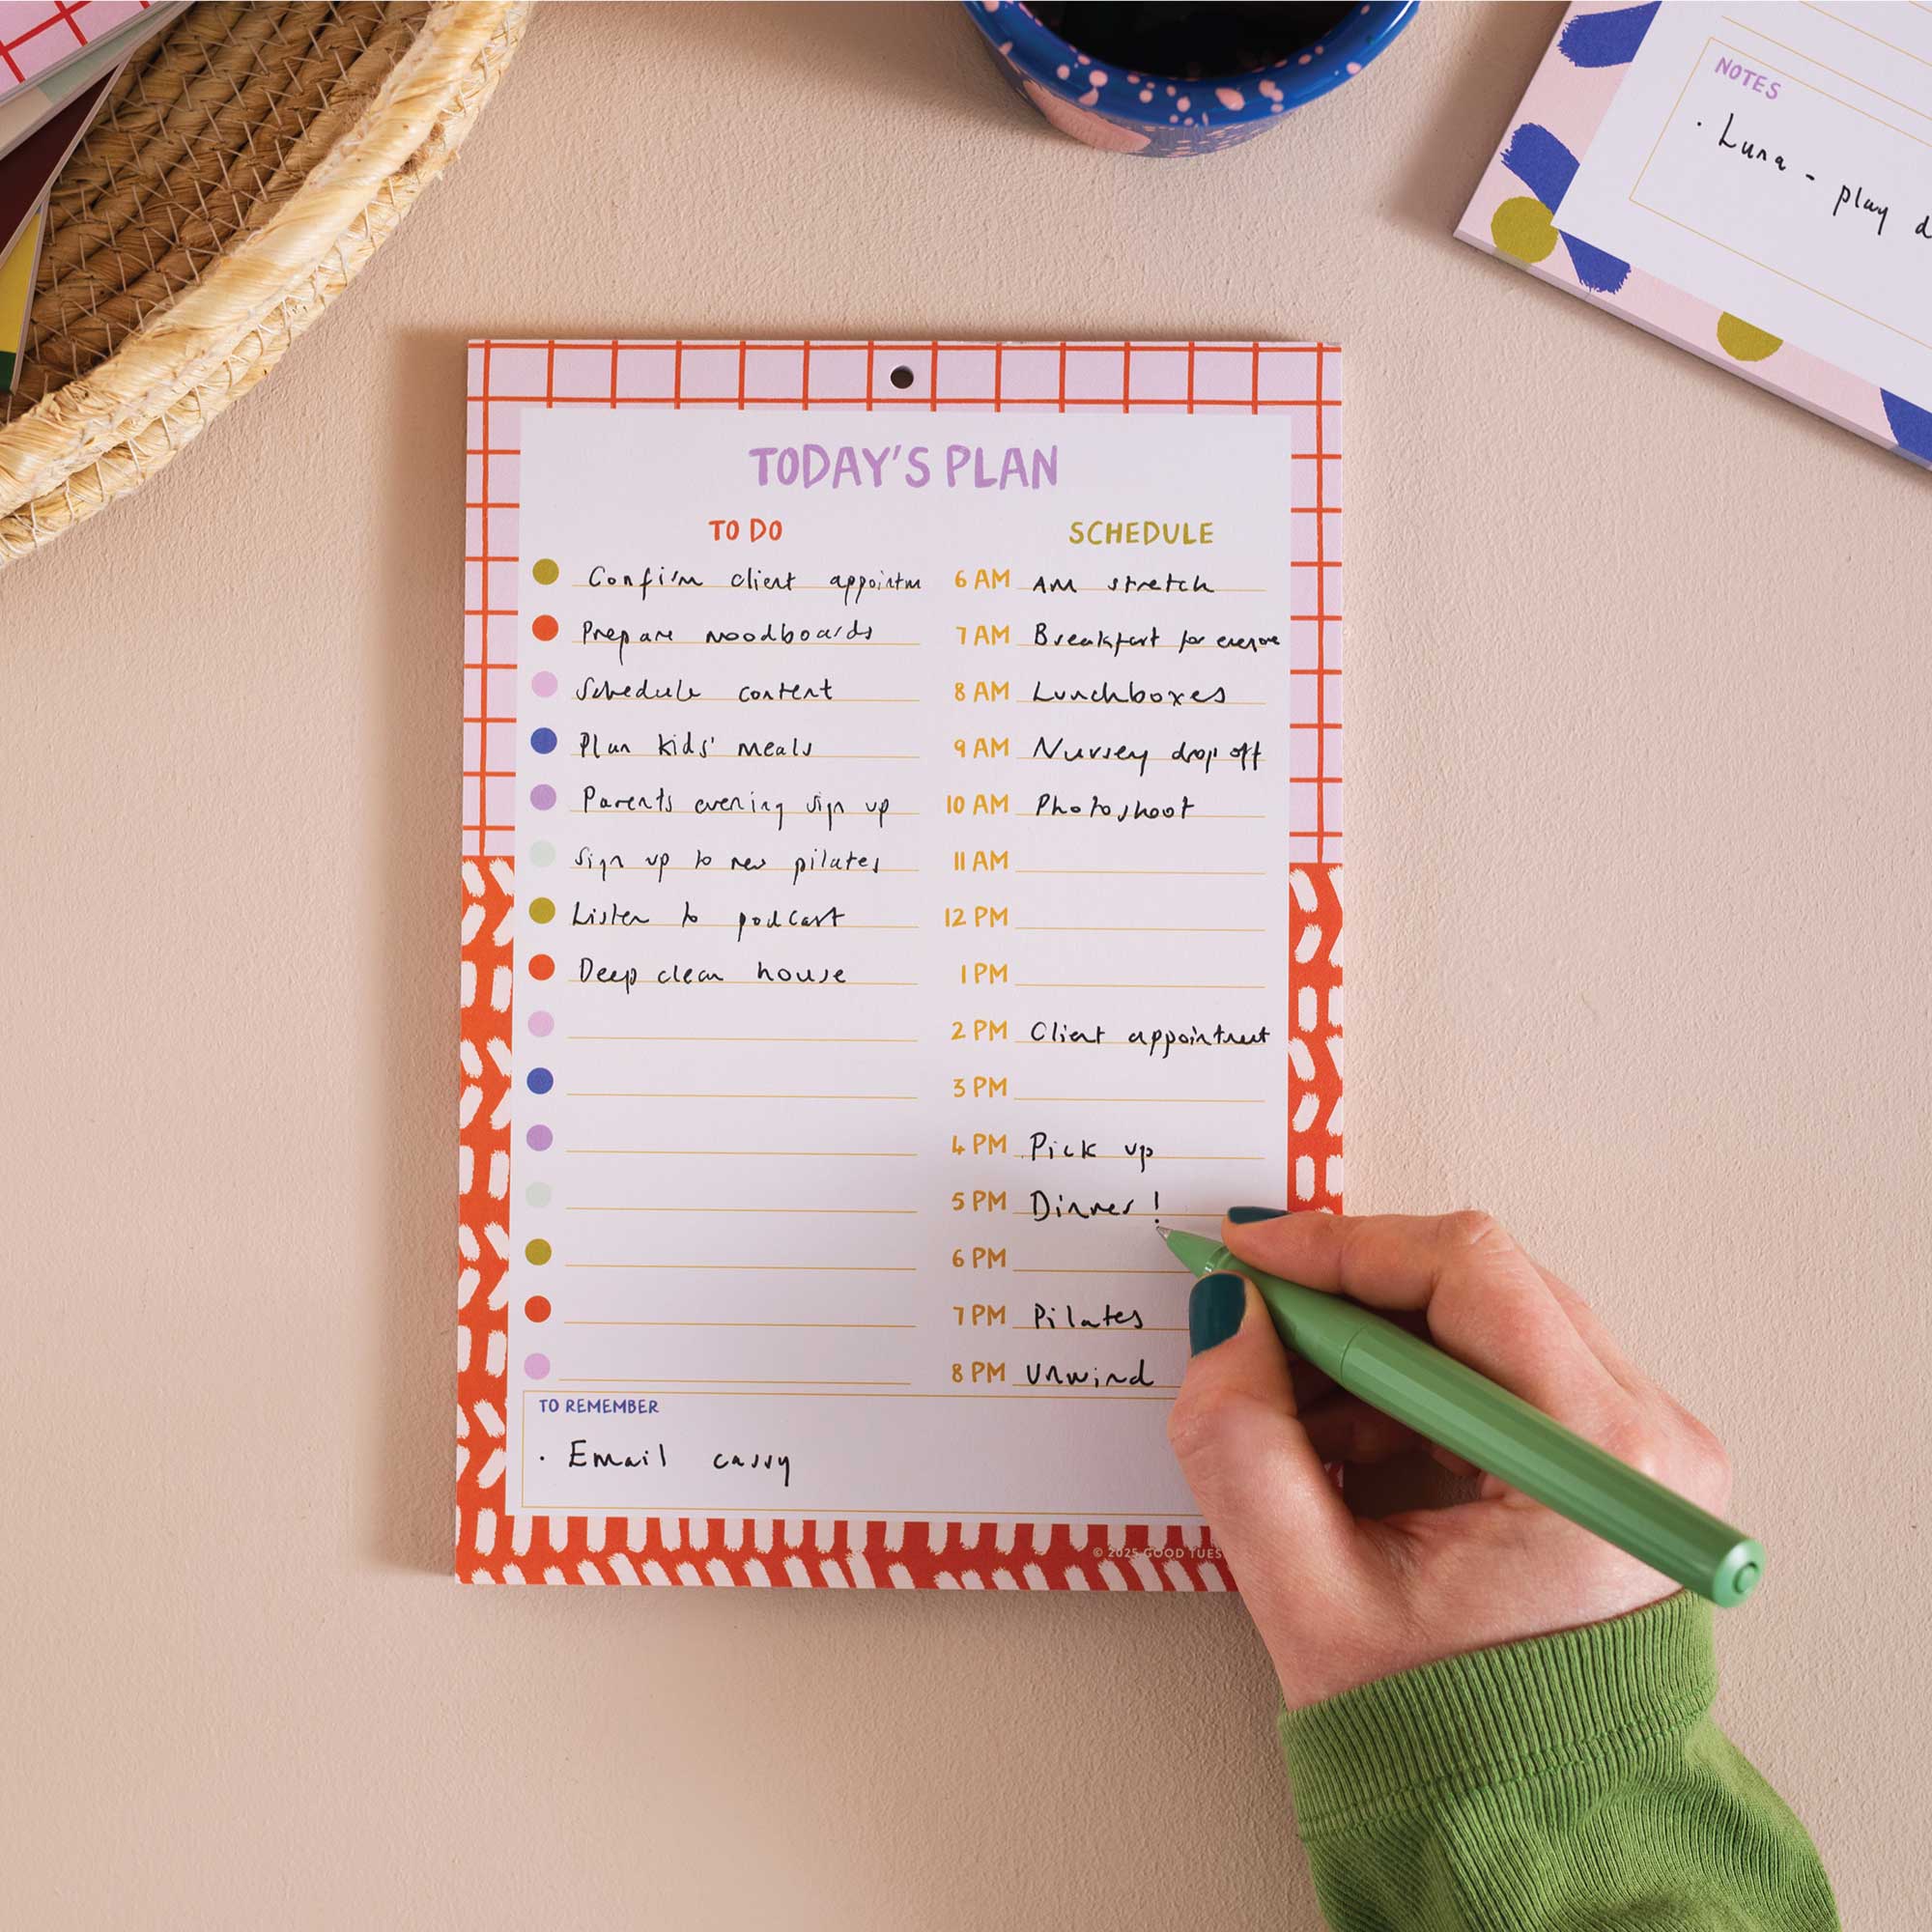 NOTES
· Luna - play d
TODAY'S PLAN
TO DO
Confirm client appointm
Prepare moodboards
Schedule content
Plan kids' meals
Parents evening sign up
Sign up to new pilates
Listen to podcast
Deep clean house
SCHEDULE
6 AM AM stretch
7 AM Breakfast for everyone
8 AM Lunchboxes
9 AM Nursery drop off
10 AM Photoshoot
11 AM
12 PM
1 PM
2 PM Client appointment
3 PM
4 PM Pick up
5 PM Dinner!
6 PM
7 PM Pilates
8 PM Unwind
TO REMEMBER
· Email cassy
© 2025 GOOD TUES